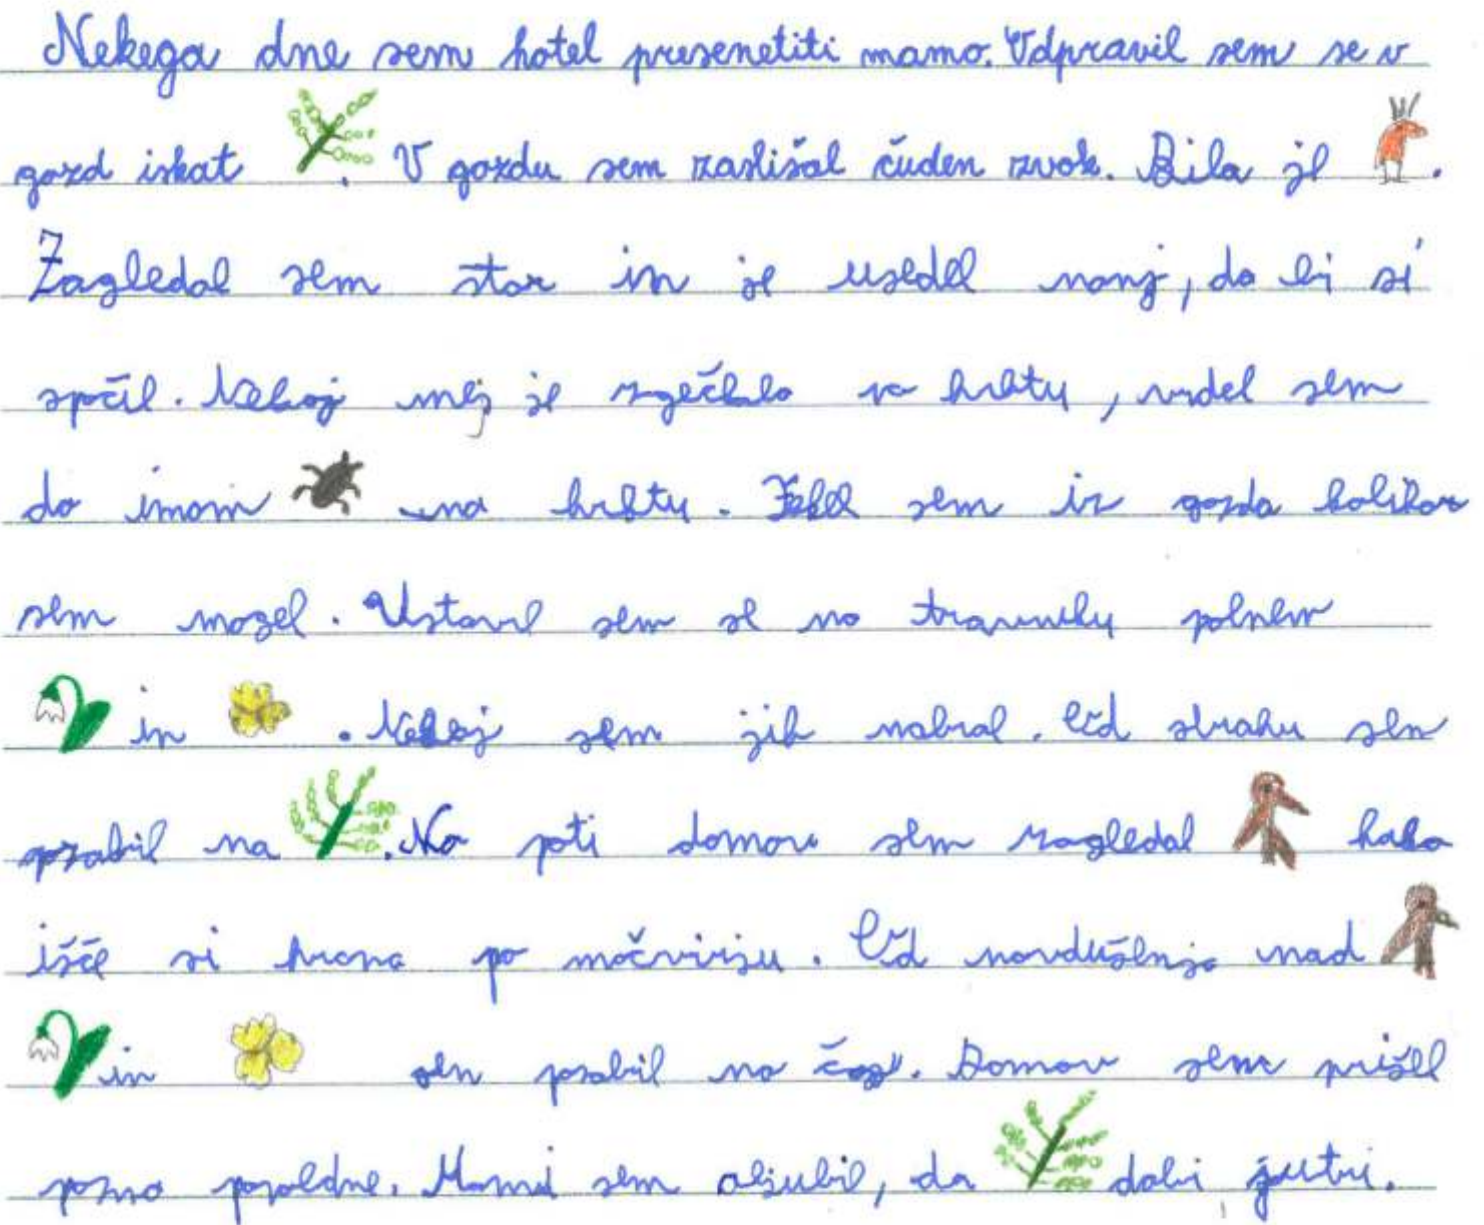 Nekega dne sem hotel presenetiti mamo. Odpravil sem se v
gozd iskat . V gozdu sem zaslišal čuden zvok. Bila je .
Zagledal sem štor in se usedel nanj, da bi si
spočil. Nekaj mej je zgečkalo po hrbtu, videl sem
da imam na hrbtu. Tekel sem iz gozda kolikor
sem mogel. Ustavil sem se na travniku polnem
in . Nekaj sem jih nabral. Od strahu sem
pozabil na . Na poti domov sem zagledal kako
išče si hrano po močvirju. Od navdušenja nad
in sem pozabil na čas. Domov sem prišel
pozno popoldne. Mami sem obljubil, da dobi jutri.